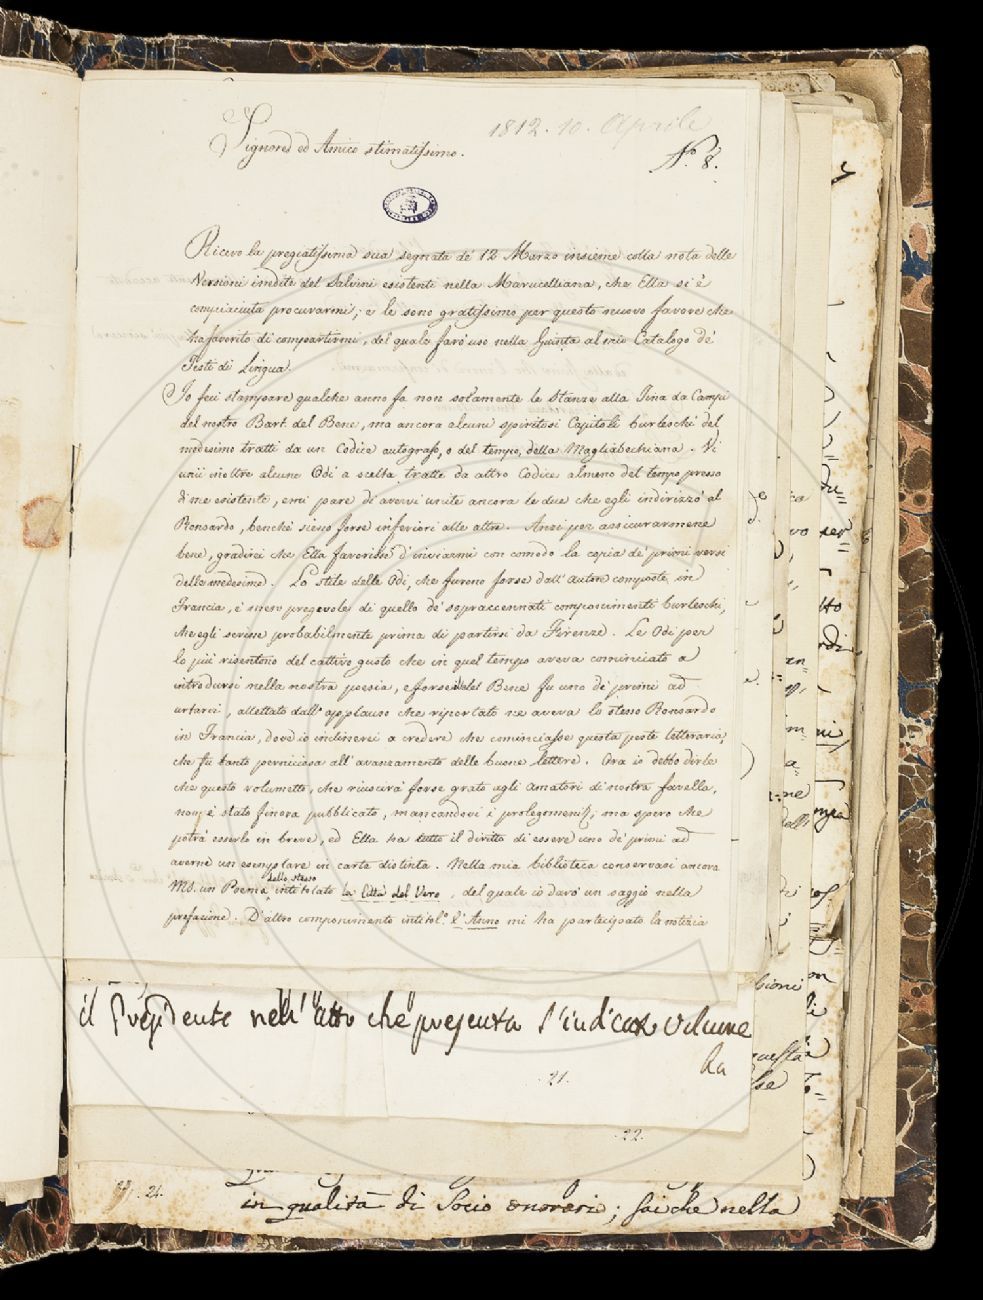 1812. 10. Aprile
Signore ed Amico stimatissimo.
N.° 8.
Ricevo la pregiatissima sua segnata de' 12 Marzo insieme colla nota delle
Versioni inedite del Salvini esistenti nella Marucelliana, che Ella si è
compiaciuta procurarmi; e le sono gratissimo per questo nuovo favore che
ha favorito di compartirmi, del quale farò uso nella Giunta al mio Catalogo de'
Testi di Lingua.
Io feci stampare qualche anno fa non solamente le Stanze alla Tina da Campi
del nostro Bart. del Bene, ma ancora alcuni spiritosi Capitoli burleschi del
medesimo tratti da un Codice autografo, o del tempo, della Magliabechiana. Vi
unii inoltre alcune Odi a scelta tratte da altro Codice almeno del tempo presso
di me esistente, e mi pare di avervi unite ancora le due che egli indirizzò al
Ronsardo, benchè sieno forse inferiori alle altre. Anzi per assicurarmene
bene, gradirei che Ella favorisse d'inviarmi con comodo la copia de' primi versi
delle medesime. Lo stile delle Odi, che furono forse dall'autore composte in
Francia, è meno pregevole di quello de' sopraccennati componimenti burleschi,
che egli scrisse probabilmente prima di partirsi da Firenze. Le Odi per
lo più risentono del cattivo gusto che in quel tempo aveva cominciato a
introdursi nella nostra poesia, e forse il del Bene fu uno de' primi ad
urtarci, allettato dall'applauso che riportato ne aveva lo stesso Ronsardo
in Francia, dove io inclinerei a credere che cominciasse questa peste letteraria,
che fu tanto perniciosa all'avanzamento delle buone lettere. Ora io debbo dirle
che questo volumetto, che riuscirà forse grato agli amatori di nostra favella,
non è stato finora pubblicato, mancandovi i prolegomeni; ma spero che
potrà esserlo in breve, ed Ella ha tutto il diritto di essere uno de' primi ad
averne un esemplare in carta distinta. Nella mia biblioteca conservasi ancora
MS. un Poema dello stesso intitolato la Città del Vero, del quale io darò un saggio nella
prefazione. D'altro componimento intitol.° l'Anno mi ha partecipato la notizia
il Presidente nell'atto che presenta l'indicato volume
ha
21.
22.
in qualità di Socio onorario; sai che nella